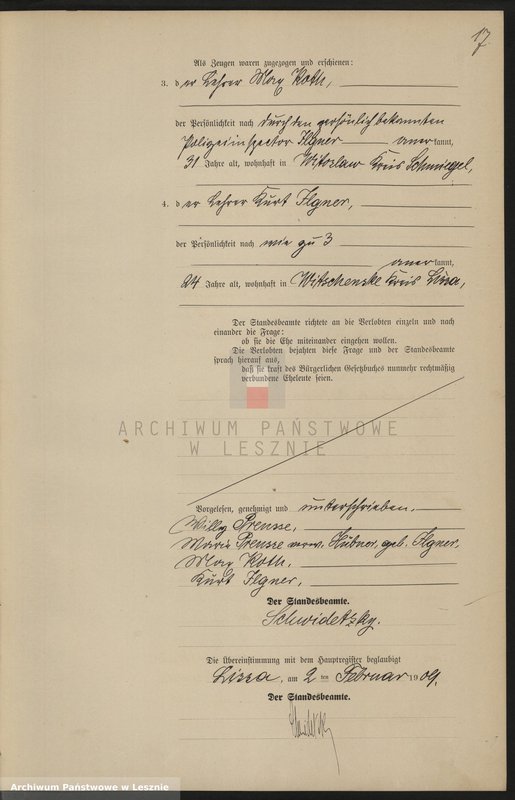 17.
Als Zeugen waren zugezogen und erschienen:
3. der Lehrer Max Roth,
der Persönlichkeit nach durch den persönlich bekannten
Polizeiinspector Ilgner anerkannt,
31 Jahre alt, wohnhaft in Witoslaw Kreis Schmiegel,
4. der Lehrer Kurt Ilgner,
der Persönlichkeit nach wie zu 3
anerkannt,
24 Jahre alt, wohnhaft in Witschenske Kreis Lissa,
Der Standesbeamte richtete an die Verlobten einzeln und nach
einander die Frage:
ob sie die Ehe miteinander eingehen wollen.
Die Verlobten bejahten diese Frage und der Standesbeamte
sprach hierauf aus,
daß sie kraft des Bürgerlichen Gesetzbuches nunmehr rechtmäßig
verbundene Eheleute seien.
ARCHIWUM PAŃSTWOWE
W LESZNIE
Vorgelesen, genehmigt und unterschrieben.
Willy Preusse,
Marie Preusse verw. Hübner, geb. Ilgner,
Max Roth,
Kurt Ilgner,
Der Standesbeamte.
Schwidetzky.
Die Übereinstimmung mit dem Hauptregister beglaubigt
Lissa, am 2 ten Februar 1909.
Der Standesbeamte.
Archiwum Państwowe w Lesznie